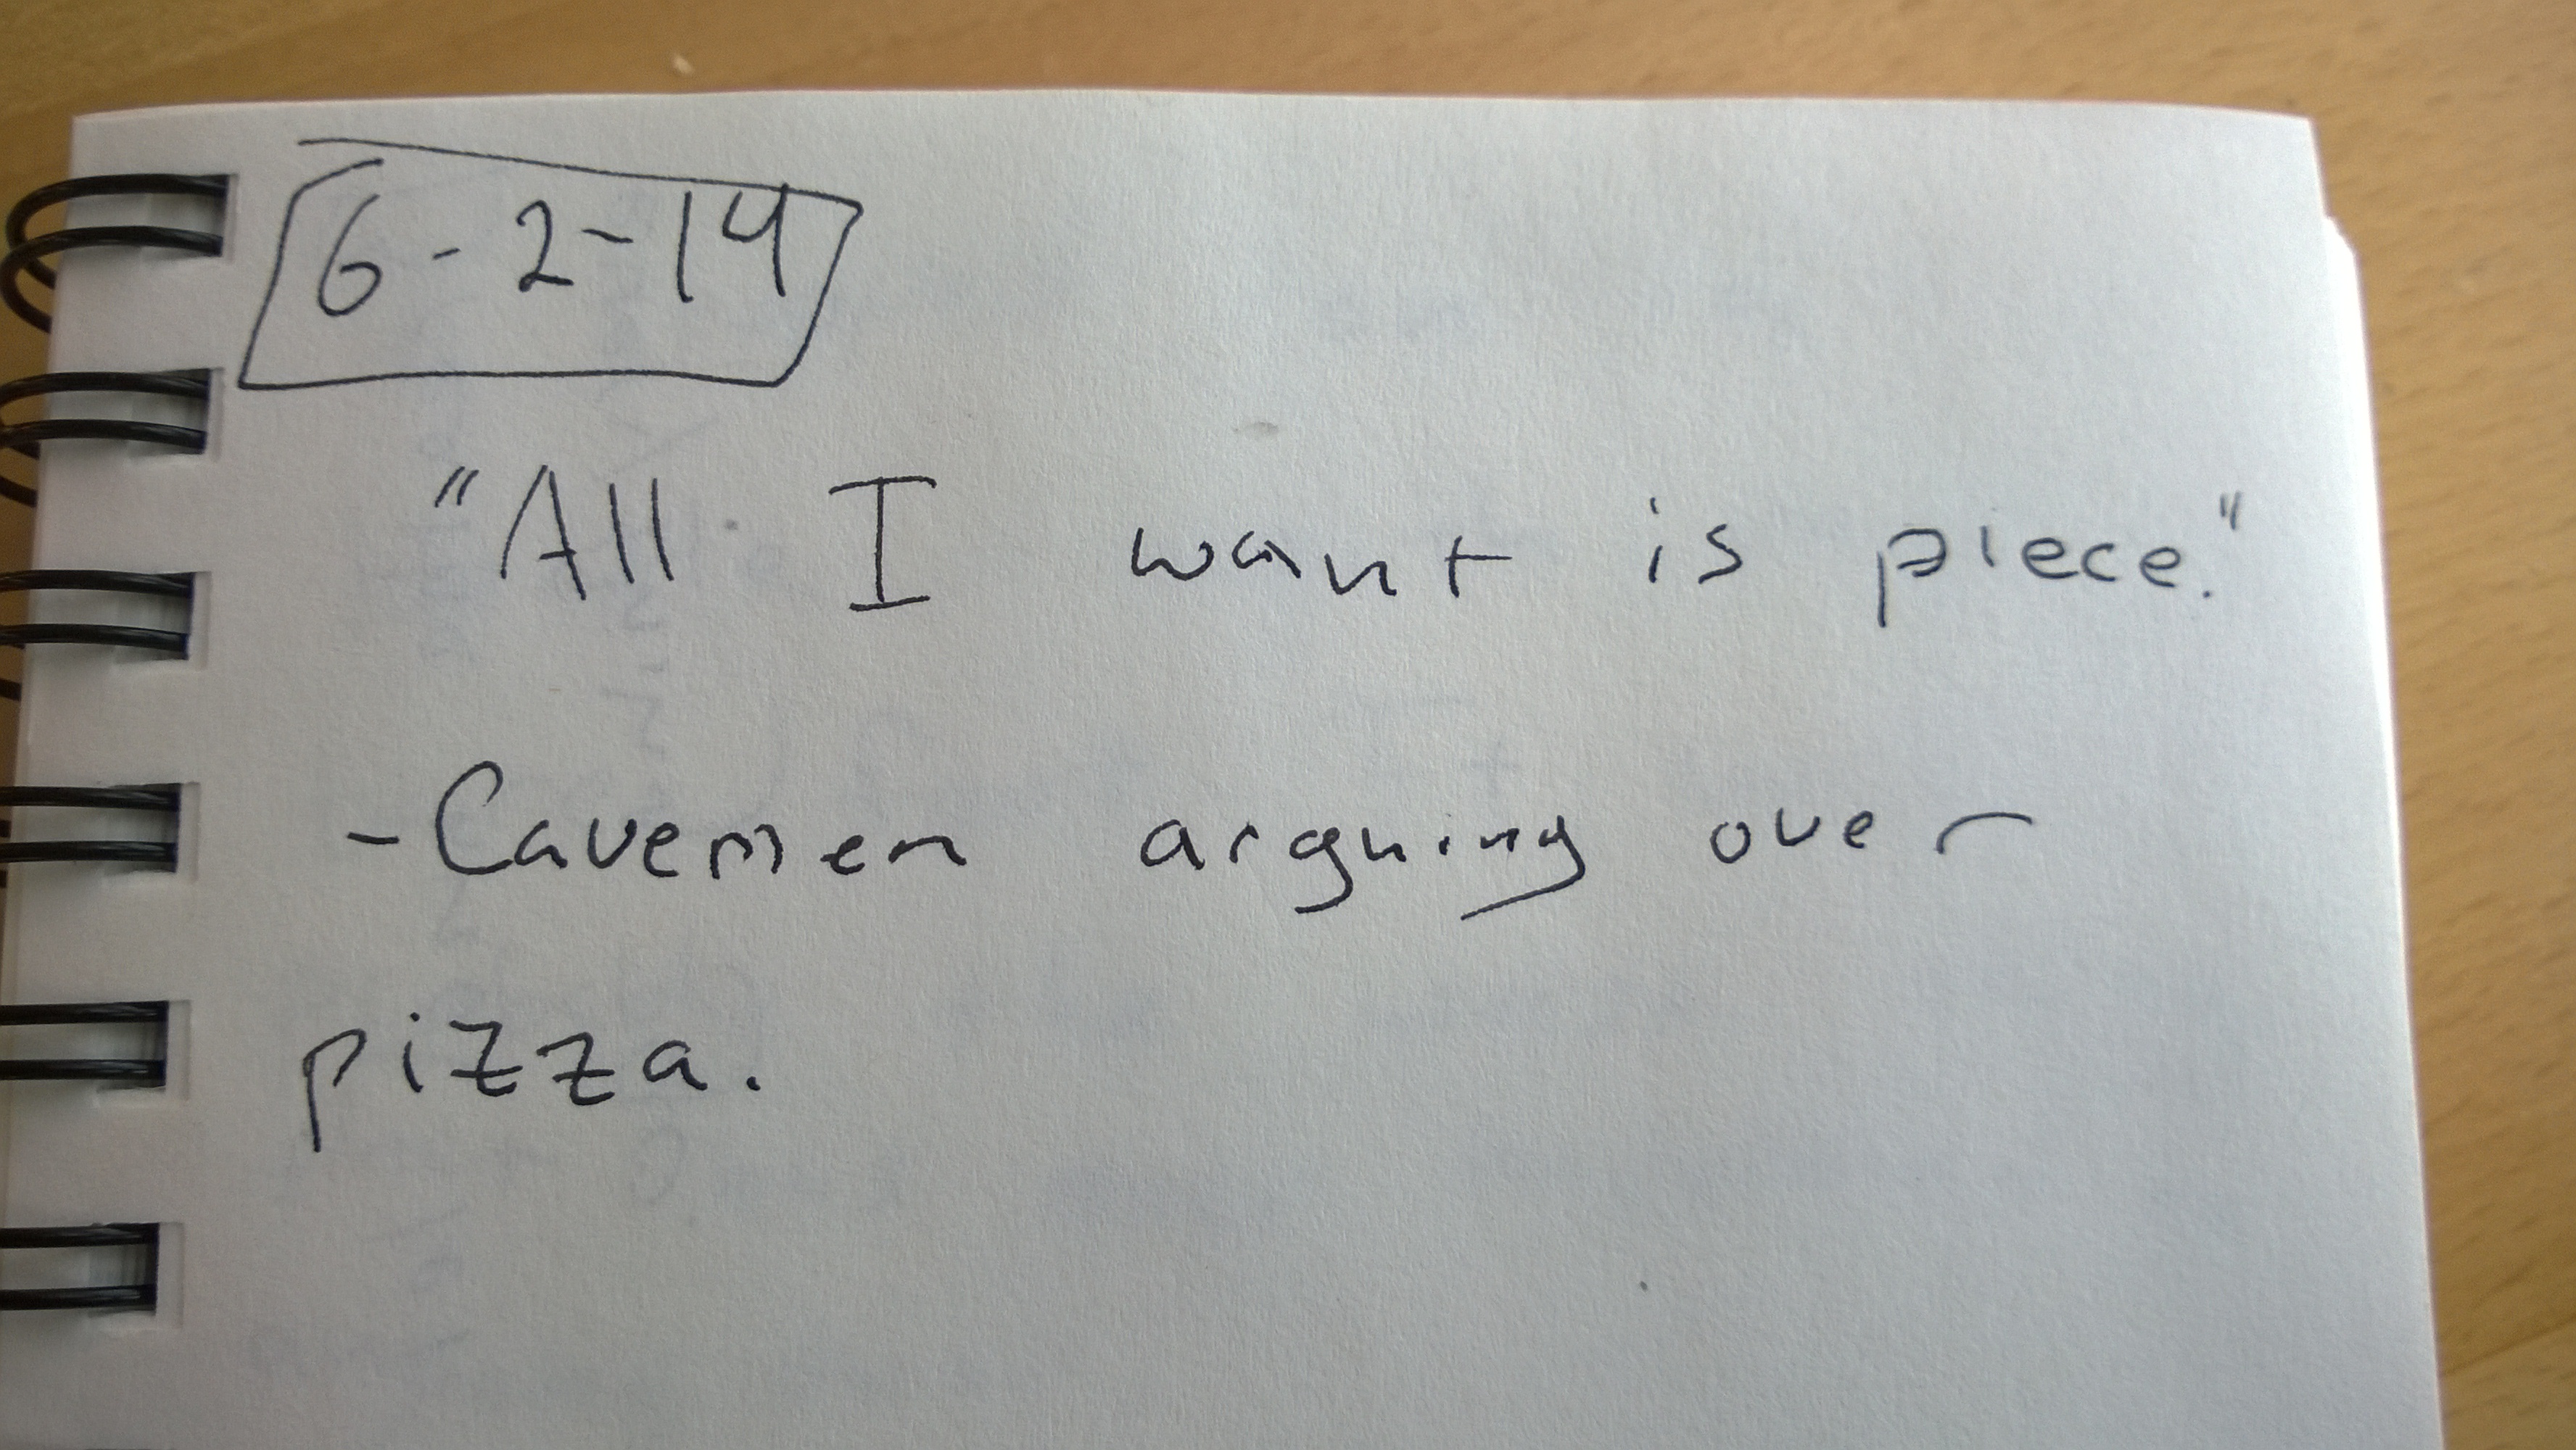 6-2-14
"All I want is piece."
-Cavemen arguing over
pizza.